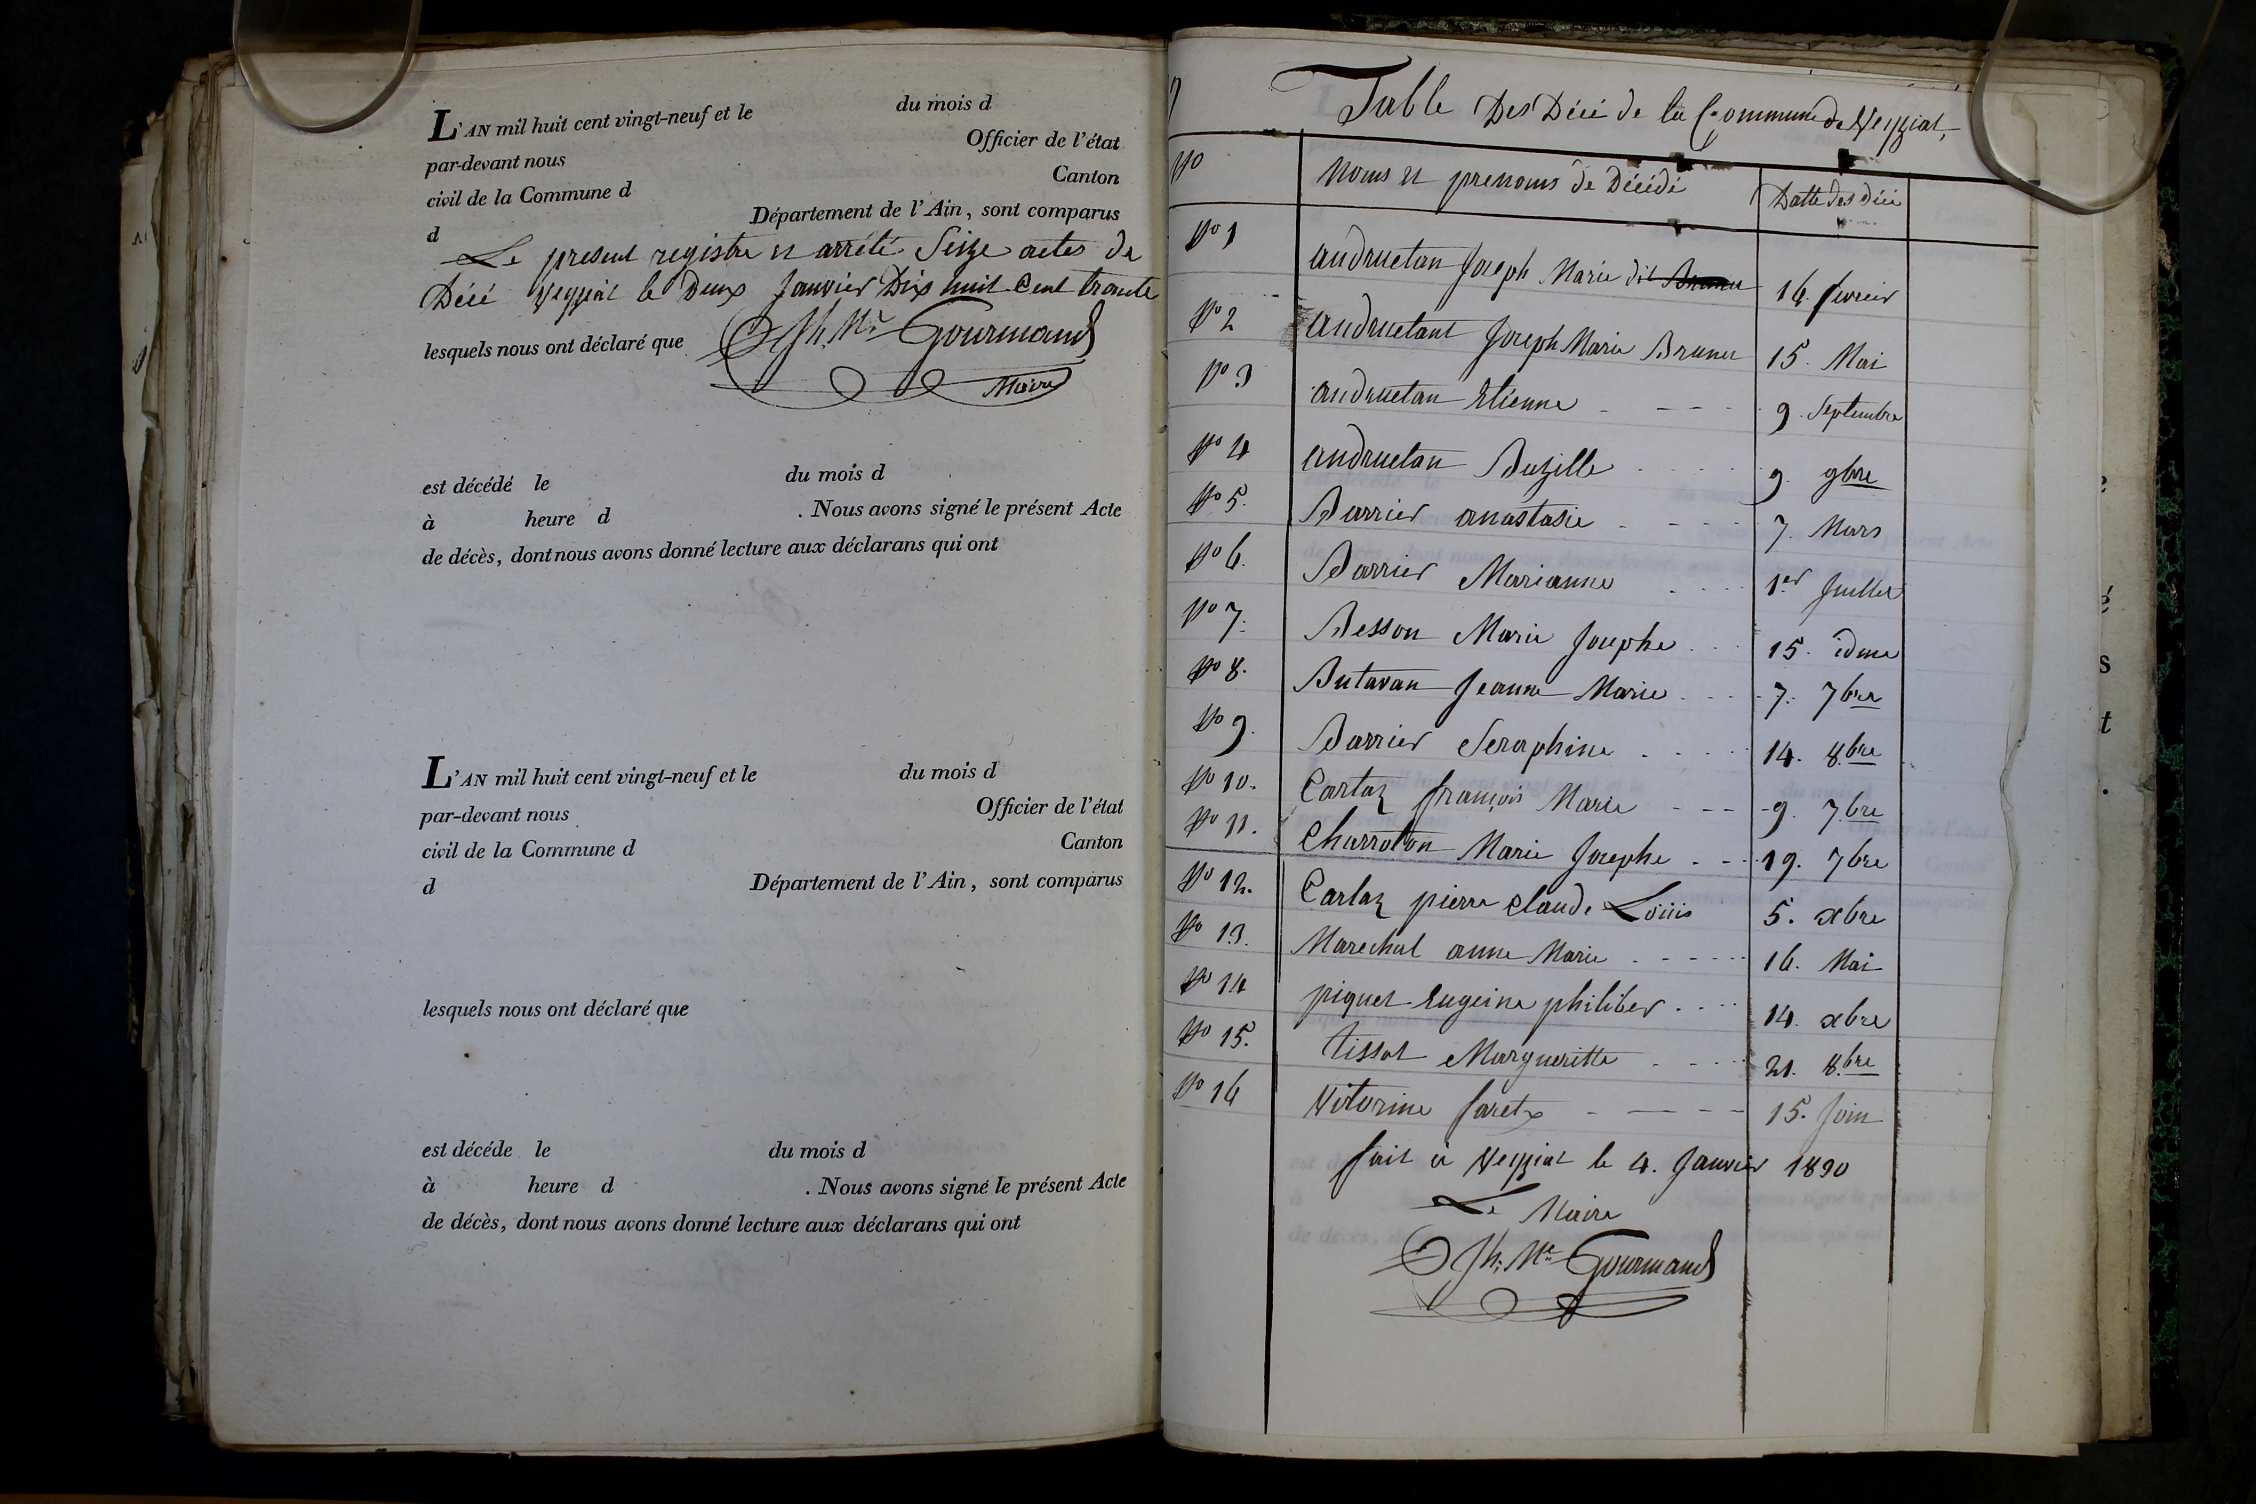 L'AN mil huit cent vingt-neuf et le du mois d
par-devant nous Officier de l'état
civil de la Commune d Canton
d Département de l'Ain, sont comparus
Le present registre et arrété Seize actes de
Décé Veyziat le Deux Janvier Dix huit Cent trante
lesquels nous ont déclaré que Jh. Me Gourmand
Maire
est décédé le du mois d
à heure d . Nous avons signé le présent Acte
de décès, dont nous avons donné lecture aux déclarans qui ont
L'AN mil huit cent vingt-neuf et le du mois d
par-devant nous Officier de l'état
civil de la Commune d Canton
d Département de l'Ain, sont comparus
lesquels nous ont déclaré que
est décéde le du mois d
à heure d . Nous avons signé le présent Acte
de décès, dont nous avons donné lecture aux déclarans qui ont
Table Des Décé de la Commune de Veyziat,
No Noms et prenoms de Décédé Datte des décé
No 1 andructan Joseph Marie dit Brunet 14 fevrier
No 2 andructant Joseph Marie Brunet 15. Mai
No 3 andructan Etienne 9. Septembre
No 4 andructan Buzille 9. 9bre
No 5. Barrier anastasie 7. Mars
No 6. Barrier Marianne 1er Juillet
No 7. Besson Marie Josephe 15. idme
No 8. Butavan Jeanne Marie 7. 7bre
No 9. Barrier Seraphine 14. 8bre
No 10. Cartaz françois Marie 9. 7bre
No 11. Charroton Marie Josephe 19. 7bre
No 12. Cartaz pierre claude Louis 5. xbre
No 13. Marechal anne Marie 16. Mai
No 14 piquet Eugeine philiber 14. xbre
No 15. tissot Margueritte 21. 8bre
No 16 Vitorine faretx 15. Join
fait à Veyziat le 4. Janvier 1830
Le Maire
Jh. Me Gourmand